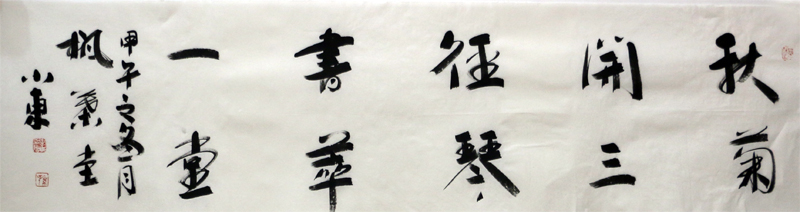 秋菊
開三
徑琴
書萃
一堂
甲午之冬月
楓葉堂
小東